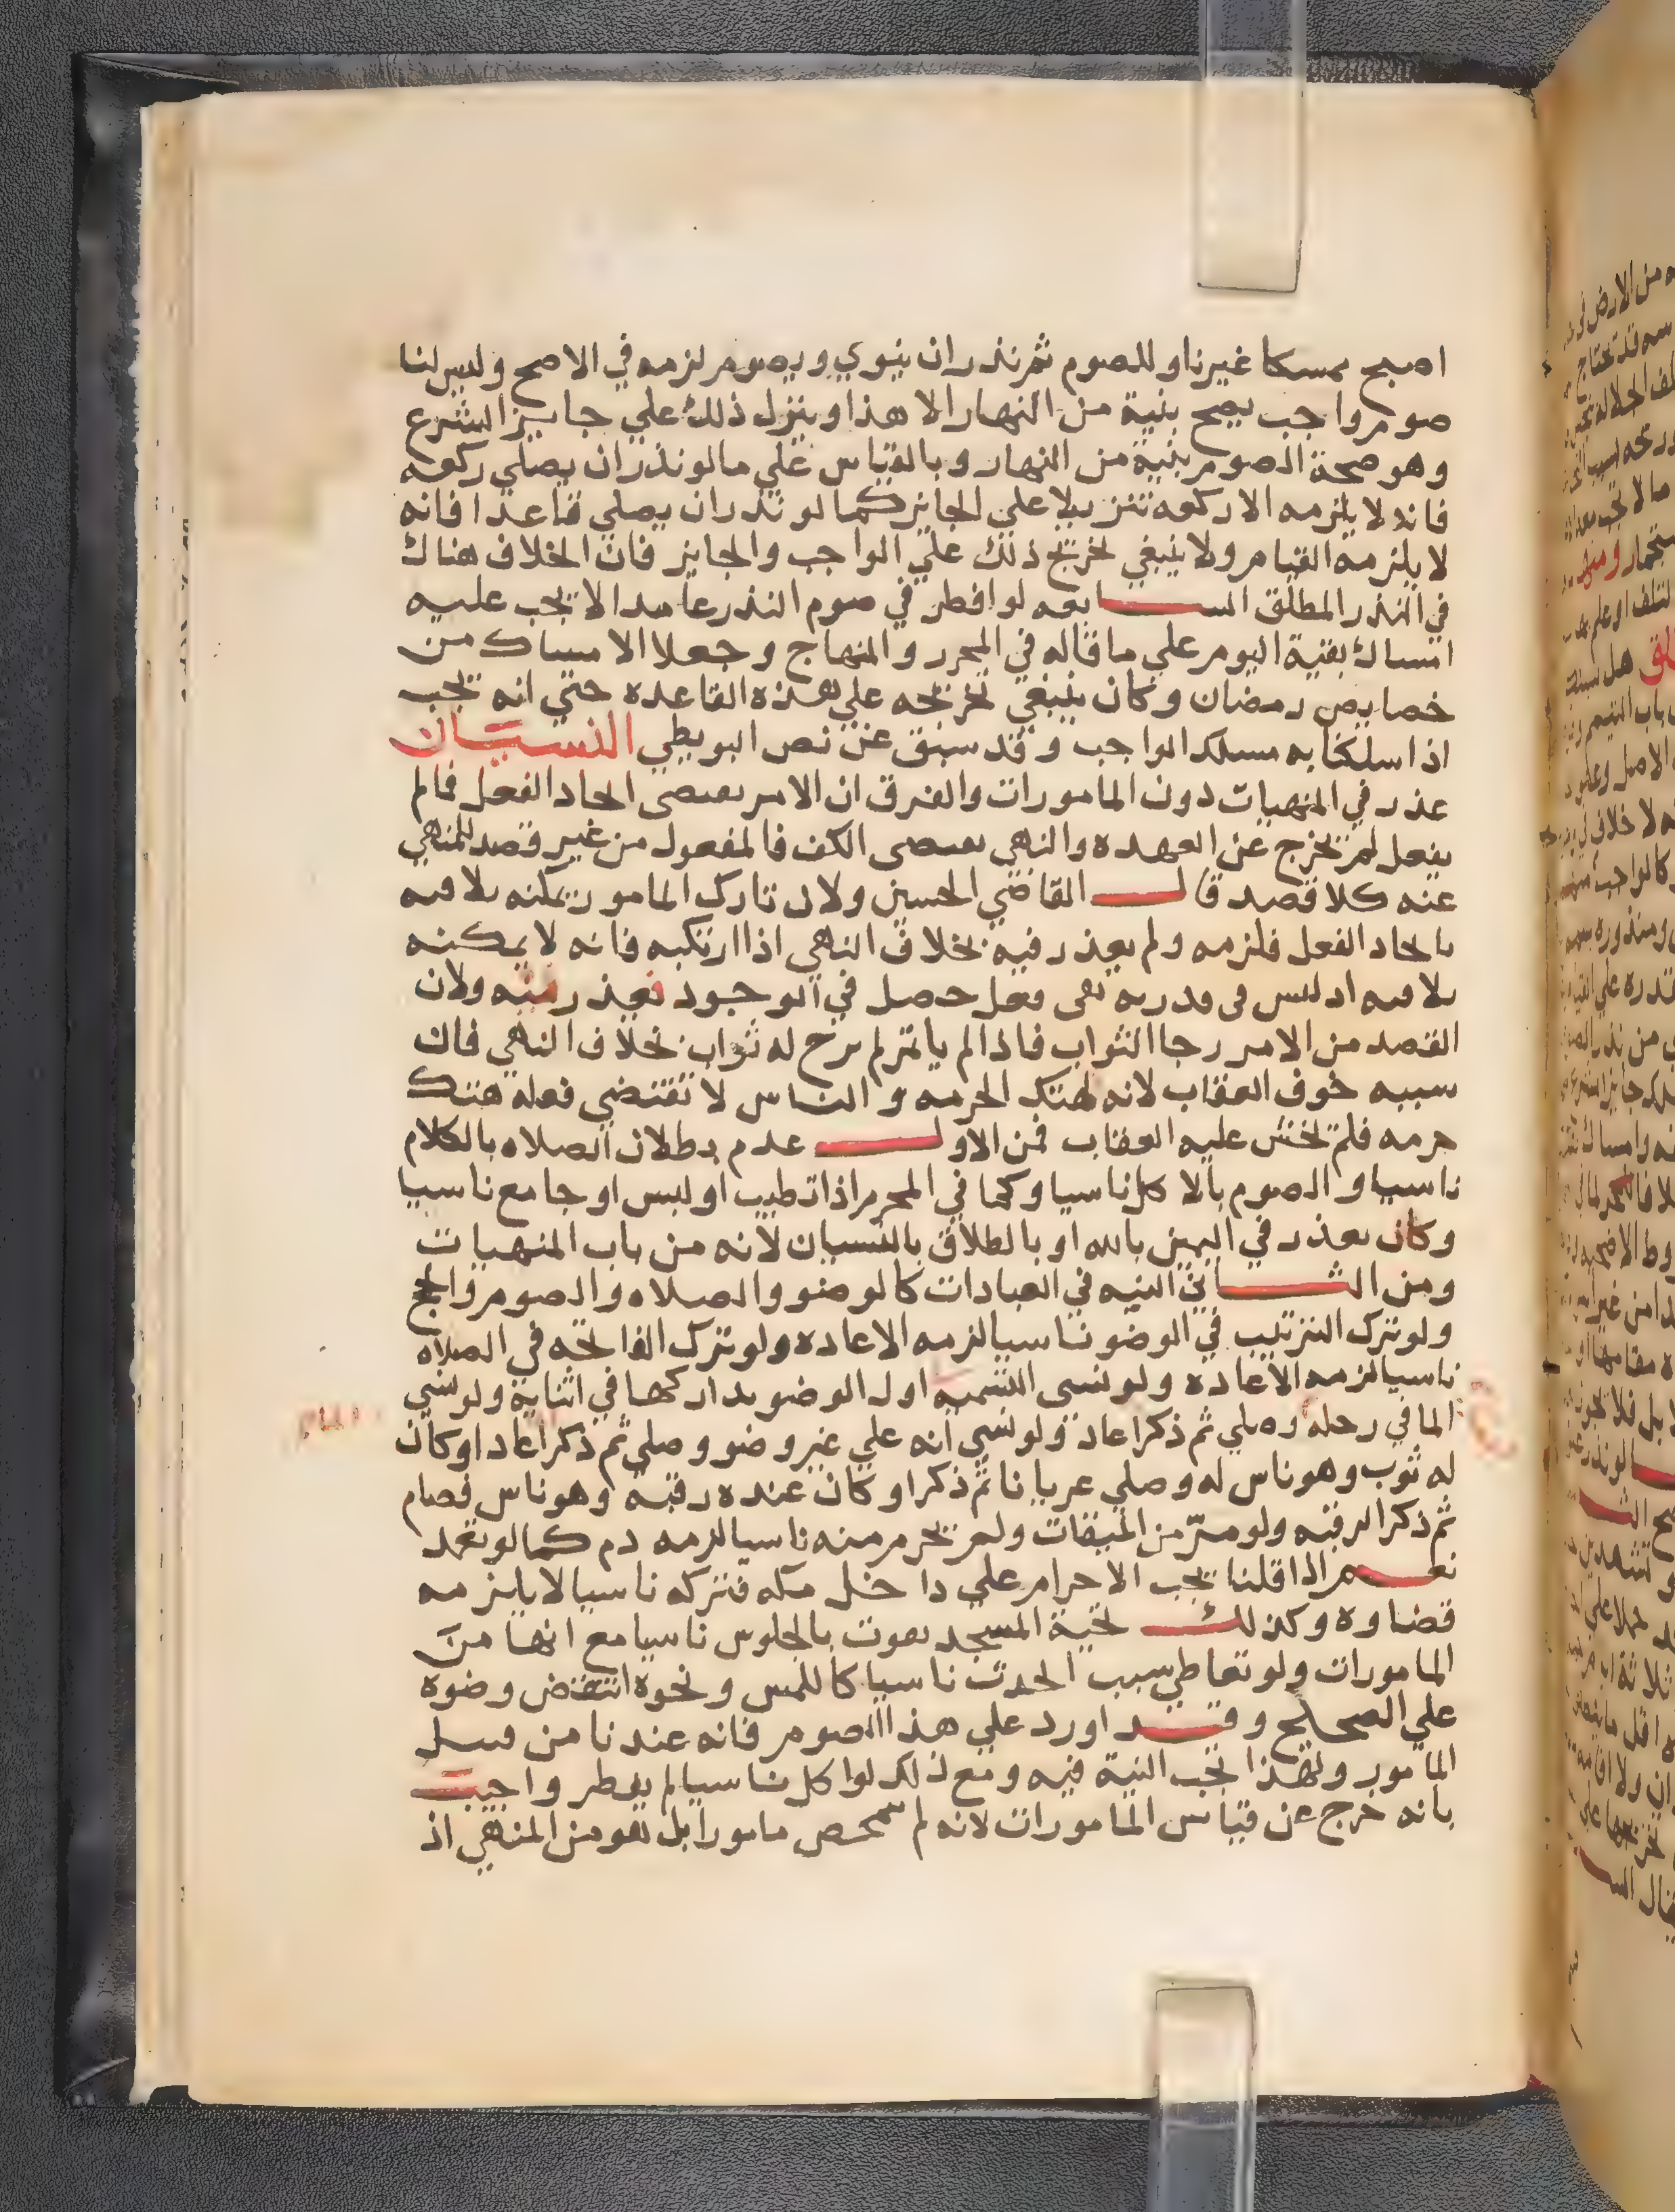 اصبح ممسكا غير ناو للصوم ثم نذر ان ينوي ويصوم لزمه في الاصح وليس لنا
صوم واجب يصح بنية من النهار الا هذا وينزل ذلك علي جايز الشرع
وهو صحة الصوم بنية من النهار وبالقياس علي ما لو نذر ان يصلي ركعه
فانه لا يلزمه الا ركعه تنزيلا علي الجايز كما لو نذر ان يصلي قاعدا فانه
لا يلزمه القيام ولا ينبغي تخريج ذلك علي الواجب والجايز فان الخلاف هناك
في النذر المطلق السابعه لو افطر في صوم النذر عامدا لا يجب عليه
امساك بقية اليوم علي ما قاله في المحرر والمنهاج وجعلا الامساك من
خصايص رمضان وكان ينبغي تخريجه علي هذه القاعده حتي انه يجب
اذا سلكنا به مسلك الواجب وقد سبق عن نص البويطي النسيان
عذر في المنهيات دون المامورات والفرق ان الامر يقتضى ايجاد الفعل فما لم
يفعل لم يخرج عن العهده والنهي يقتضى الكف فالمفعول من غير قصد للمنهي
عنه كلا قصد قال القاضي الحسين ولان تارك المامور يمكنه تلافيه
بايجاد الفعل فلزمه ولم يعذر فيه بخلاف النهي اذا ارتكبه فانه لا يمكنه
تلافيه اذ ليس في قدرته نفى فعل حصل في الوجود فعذر فيه ولان
القصد من الامر رجا الثواب فاذا لم ياتمر لم يرج له ثواب بخلاف النهي فان
سببه خوف العقاب لانه لهتك الحرمه والناس لا تقتضي فعله هتك
حرمه فلم يخش عليه العقاب فمن الاول عدم بطلان الصلاه بالكلام
ناسيا والصوم بالاكل ناسيا وكما في المحرم اذا تطيب او لبس او جامع ناسيا
وكان يعذر في اليمين بالله او بالطلاق بالنسيان لانه من باب المنهيات
ومن الثاني النيه في العبادات كالوضو والصلاه والصوم والحج
ولو ترك الترتيب في الوضو ناسيا لزمه الاعاده ولو ترك الفاتحه في الصلاه
ناسيا لزمه الاعاده ولو نسى التسميه اول الوضو تداركها في اثنايه ولو نسي
الما في رحله وصلي ثم ذكر اعاد ولو نسي انه علي غير وضو وصلي ثم ذكر اعاد او كان
له ثوب وهو ناس له وصلي عريانا ثم ذكر او كان عنده رقبه وهو ناس فصام
ثم ذكر الرقبه ولو مرّ من الميقات ولم يحرم منه ناسيا لزمه دم كما لو تعمد
نعم اذا قلنا يجب الاحرام علي داخل مكه فتركه ناسيا لا يلزمه
قضاوه وكذلك تحية المسجد تفوت بالجلوس ناسيا مع انها من
المامورات ولو تعاطي سبب الحدث ناسيا كاللمس ونحوه انتقض وضوه
علي الصحيح وقد اورد علي هذا الصوم فانه عندنا من قبيل
المامور ولهذا تجب النية فيه ومع ذلك لو اكل ناسيا لم يفطر واجيب
بانه خرج عن قياس المامورات لانه لم يتمحص مامورا بل هو من المنهي اذ